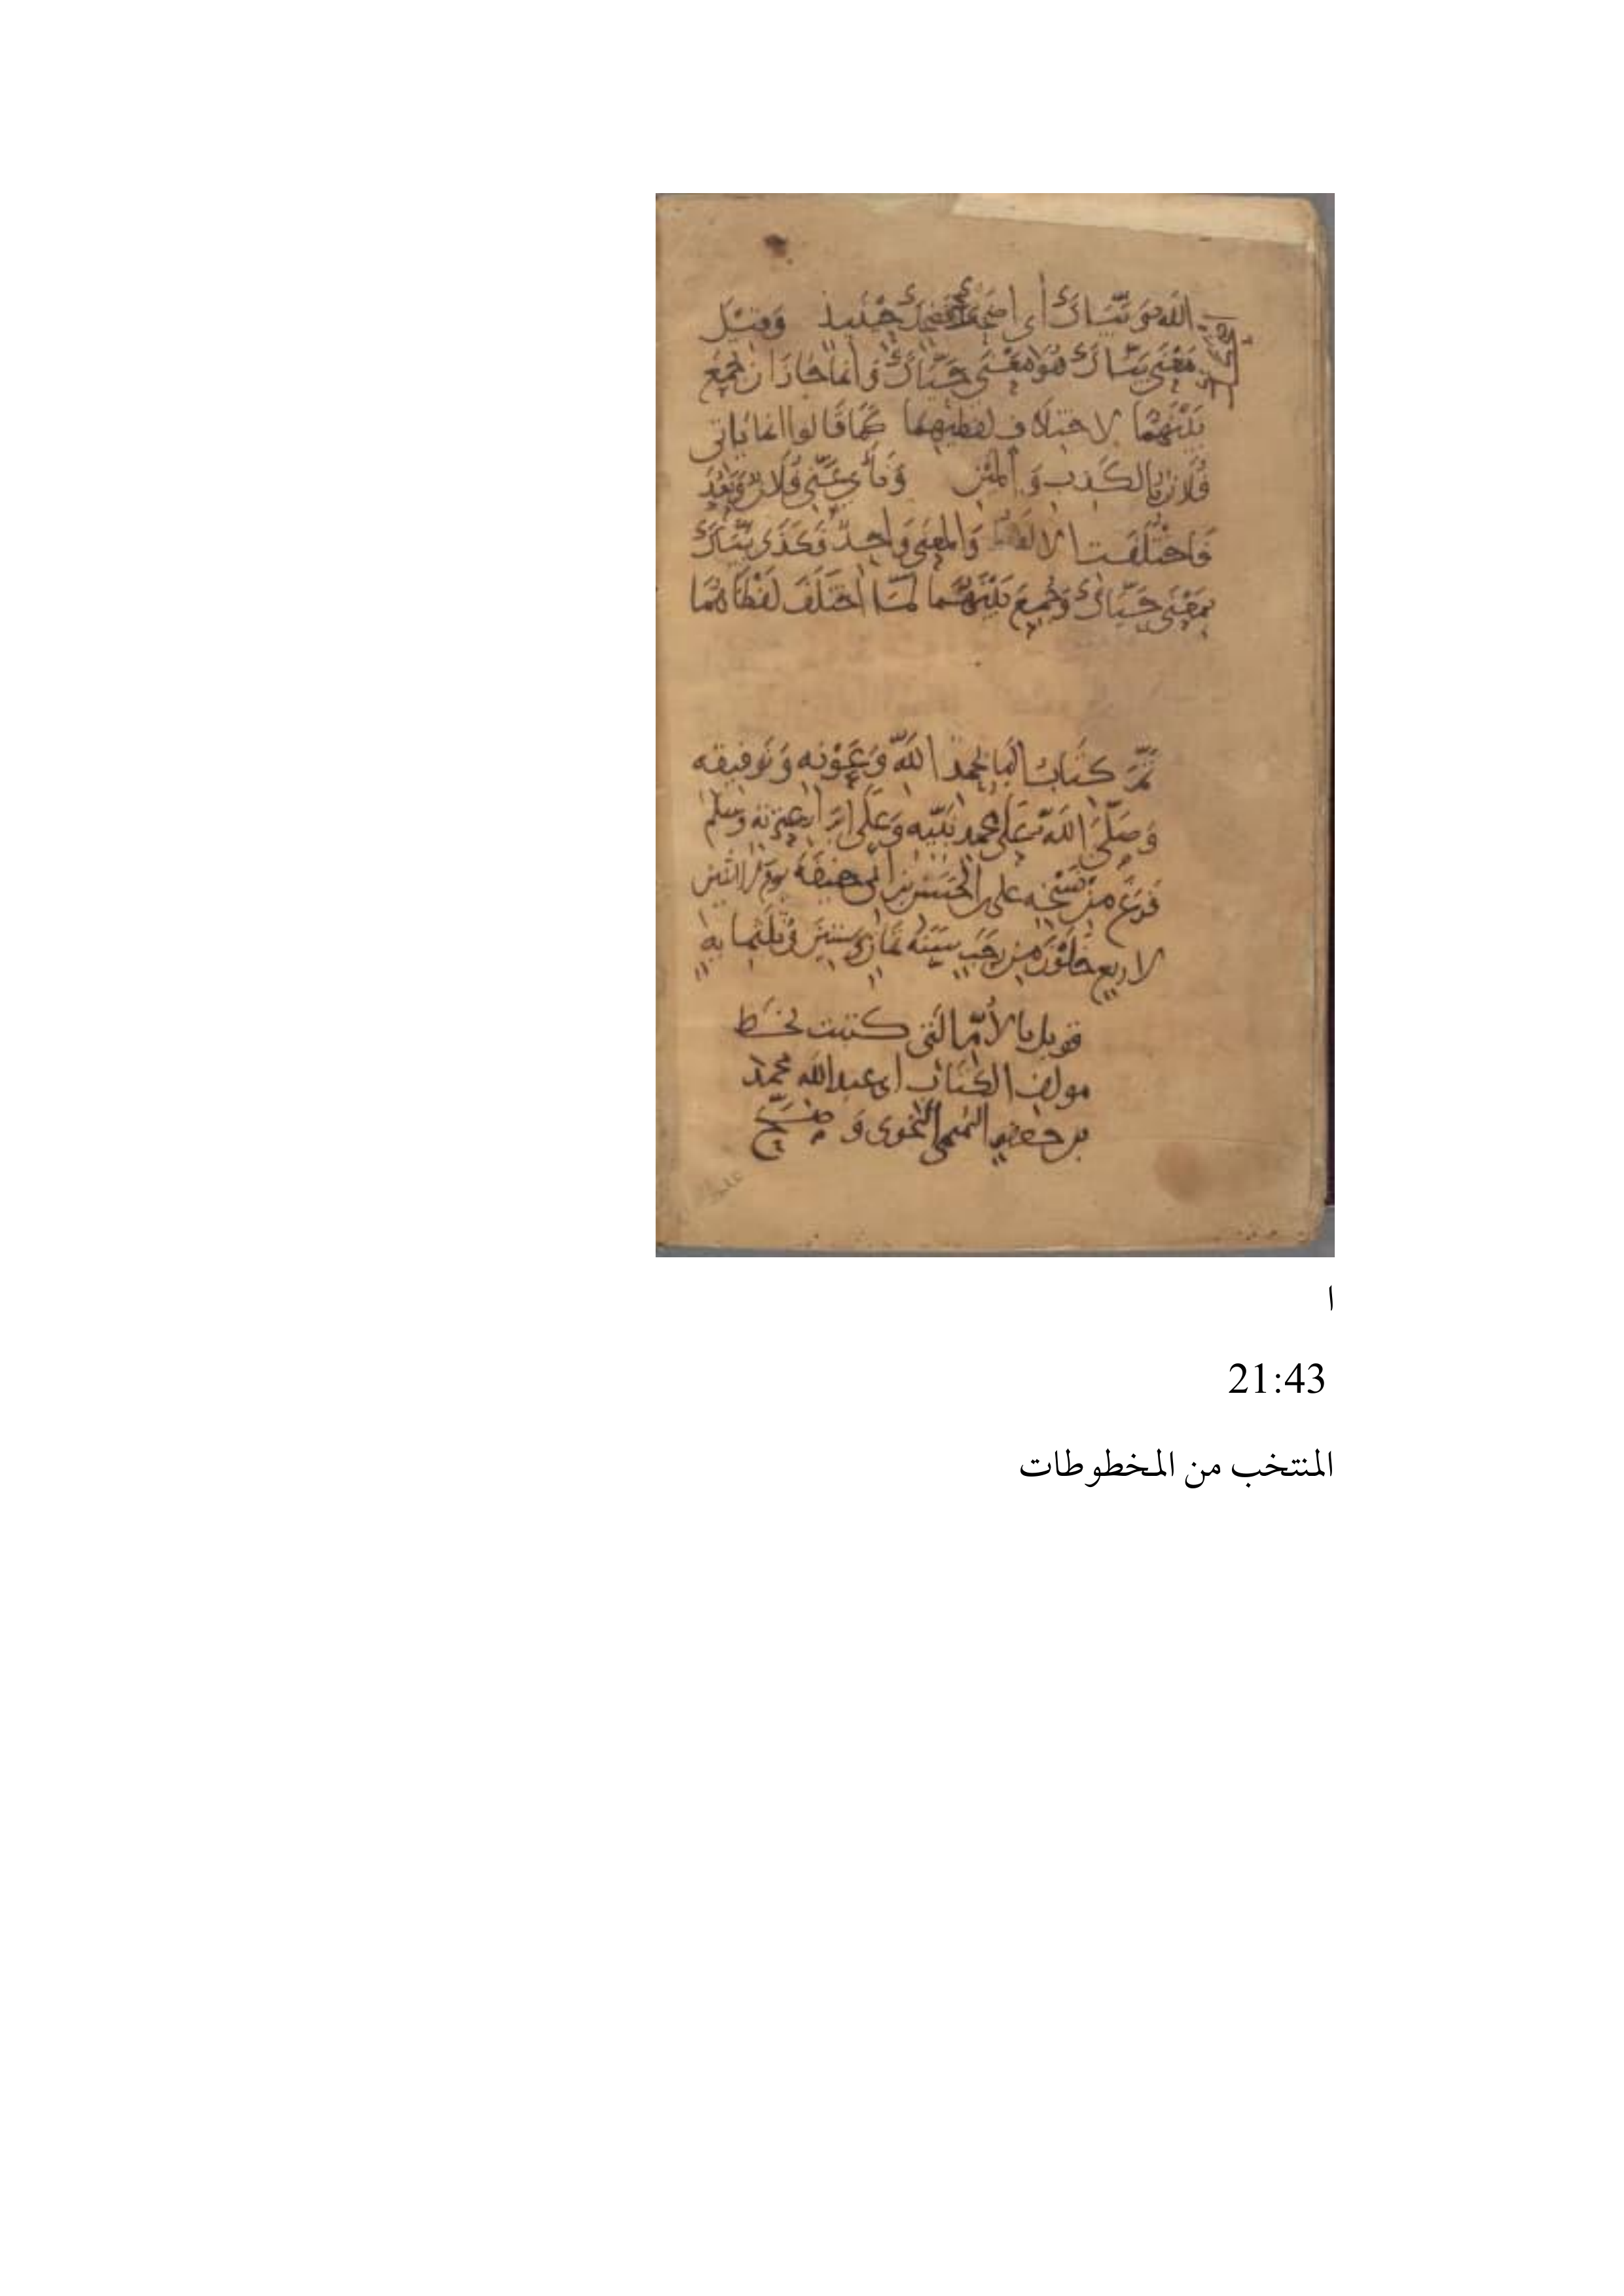 الله وَبَيَّاكَ أي اضحكك فَضَحِكَ حينئيذ وَقِيل
مَعْنَى بَيَّاكَ هُوَ مَعْنَى حَيَّاكَ وانما جَازَ ان يجمع
بَيْنَهُمَا لاختلاف لفظيهما كَمَا قَالوا انما يَاتى
فُلان بالكَذب وَ المَيْن وَنأى عَنّى فُلانٌ وَبَعُدَ
فَاختَلَفَت الالفاظ وَالمعنى وَاحِدٌ فَكَذى بَيَّاكَ
بمَعْنى حَيَّاكَ وَجُمِعَ بَيْنَهُمَا لمّا اختَلَفَ لَفْظَاهُمَا
تَمَّ كتَابُ البا بحمد اللَّه وَعَوْنه وَتَوفيقه
وَصَلّى اللَّه عَلى محمد نَبيّه وَعَلى ابرار عترته وَسَلم
فَرَغَ مِنْ نَسْخه على بن الحسن بن ابى حنيفة يوم الاثنين
لاربع خَلَوْنَ مِن رَجَب سَنَة ثمان وستين وثلثمايه
قوبل بالأمّ التى كتبت بخط
مولف الكتاب ابى عبد الله محمد
بن جعفر التميمى النحوى وَ صحّ
ا
21:43
المنتخب من المخطوطات